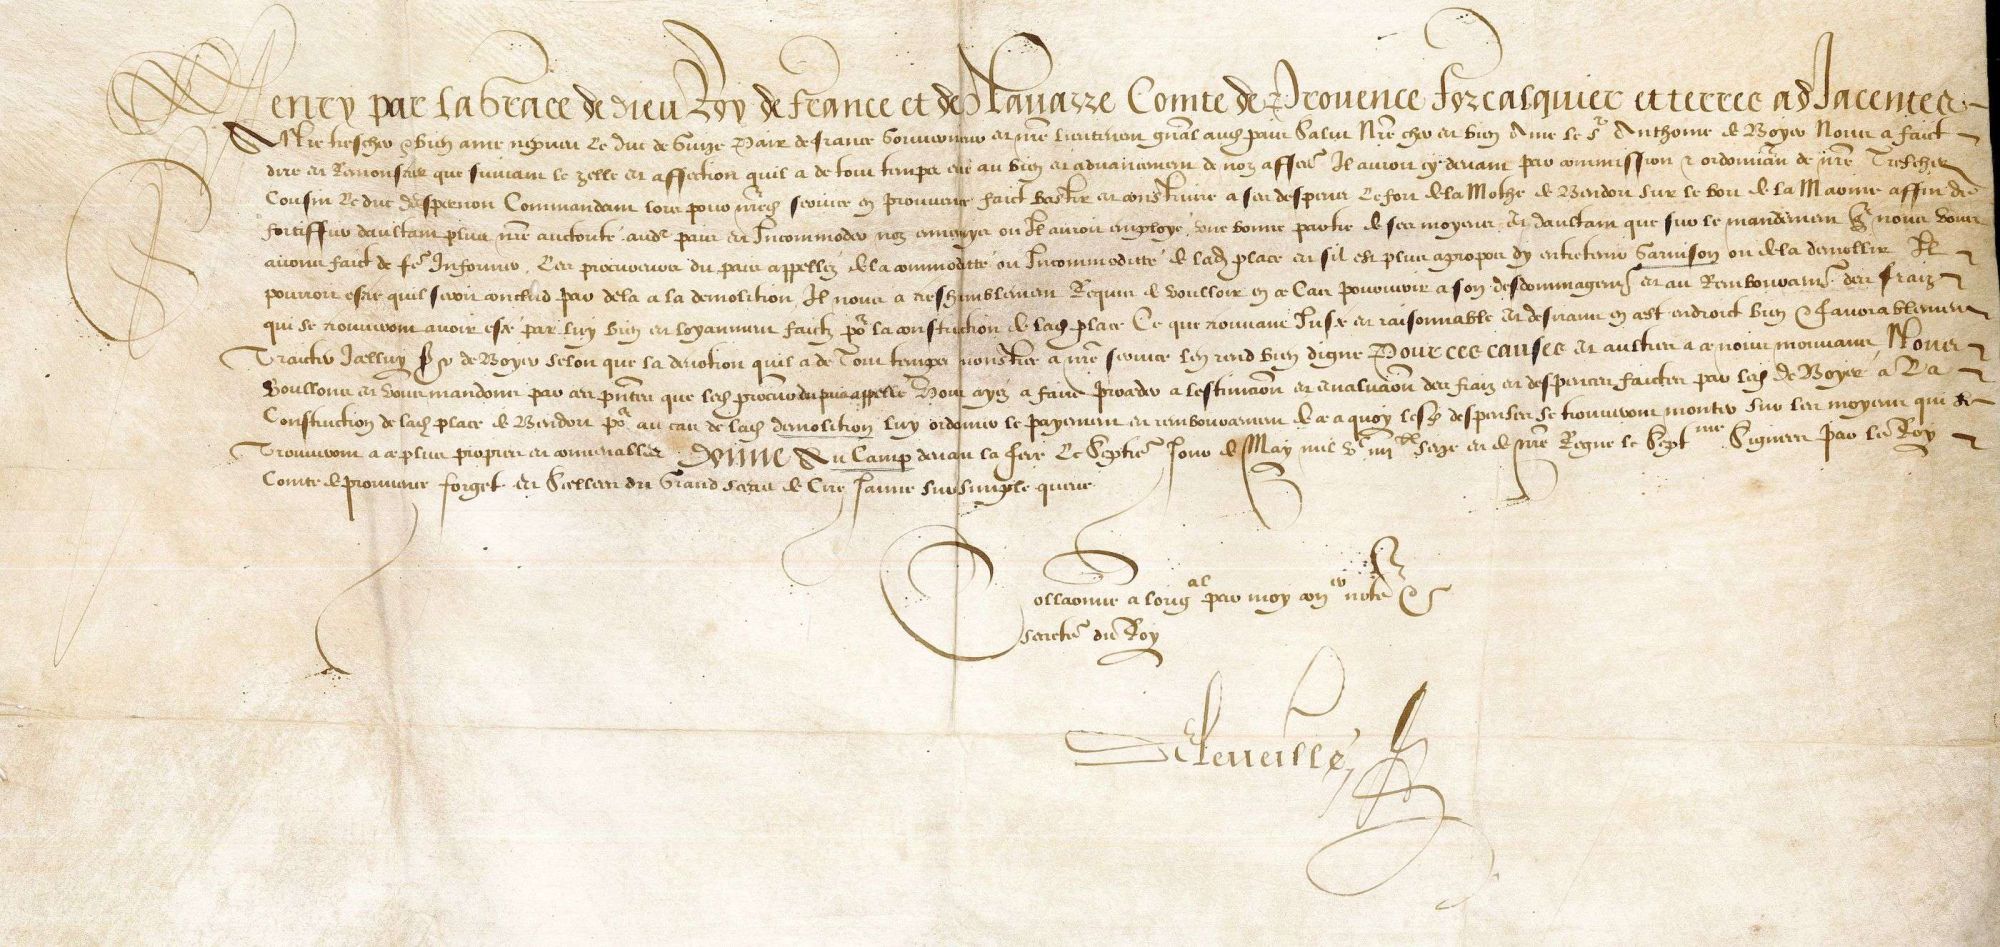 Henry par la Grace de dieu Roy de france et de Navarre Comte de Provence forcalquier et terres adJacentes
A Nre trescher & bien ame nepveu Le Duc de Guize Pair de france Gouverneur et nre lieutenent gnal aud pais Salut Nre cher et bien Ame le Sr Anthoine de Boyer Nous a faict
dire et Remonstrer que suivant le zelle et affection quil a de tout temps eue au bien et advancement de noz affres Il auroit cy devant par commission & ordonnan de nre Trescher
Cousin Le duc despernon Commandant lors pour nred service en provence faict bastir et construire a ses despens Le fort de la Mothe de Verdon sur le bort de la Marine affin de
fortiffier daultant plus nre auctorite aud pais et Incommoder noz ennemys ou Il auroit employé une bonne partie de ses moyens Et daultant que sur le mandement que nous vous
avons faict de fe Informer Les procureurs du pais appellez de la commoditté ou Incommoditté de lad place et sil est plus apropos dy entretenir Garnison ou de la demollir Il
pourroit estre quil seroit conclud par dela a la demolition Il nous a treshumblement Requis de voulloir en ce Cas pourvoir a son desdommagemt et au Remboursemt des fraiz
qui se trouveront avoir esté par luy bien et loyaument faictz pr la construction de lad place Ce que trouvant Juste et raisonnable Et desirant en cest endroit bien & favorablement
Traicter Icelluy Sr de Boyer selon que la devotion quil a de Tout temps monstree a nre service len rend bien digne Pour ces causes et aultres a ce nous mouvans Nous
Voullons et vous mandons par ces pntes que lesd procurs du pais appelle Vous ayez a faire proceder a lestimaon et evaluaon des fraiz et despences faictes par led de Boyer a La
Construction de lad place de Verdon pr au cas de lad demolition luy ordonner le payement et remboursement de ce a quoy lesd despenses se trouveront monter sur les moyens qui se
Trouveront a ce plus propres et convenables Donné Au Camp devant la fere Le Septie Jour de May mil vc iiiixx seize et de nre Regne le Septme Signees Par le Roy
Comte de provence forget et Scellees du Grand sceau de Cire Jaune sur simple queue
Collaonne a lorigal par moy conser notre &
secretre du Roy
Leveillé